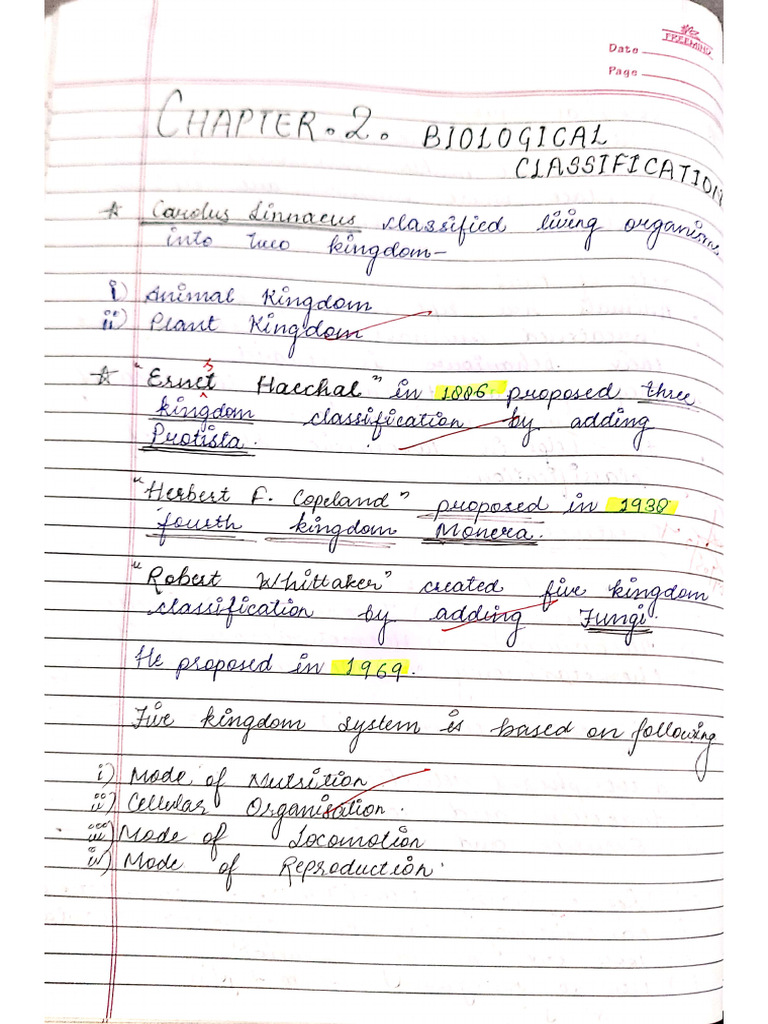 FREEMIND
Date
Page
CHAPTER.2. BIOLOGICAL
CLASSIFICATION
☆ Carolus Linnaeus classified living organisms
into two kingdom-
i) Animal Kingdom
ii) Plant Kingdom
s
☆ "Ernct Haechal" in 1886 proposed three
kingdom classification by adding
Protista.
"Herbert F. Copeland" proposed in 1938
fourth kingdom Monera.
"Robert Whittaker" created five kingdom
classification by adding Fungi.
He proposed in 1969.
Five kingdom system is based on following
i) Mode of Nutrition
ii) Cellular Organisation.
iii) Mode of Locomotion
iv) Mode of Reproduction.